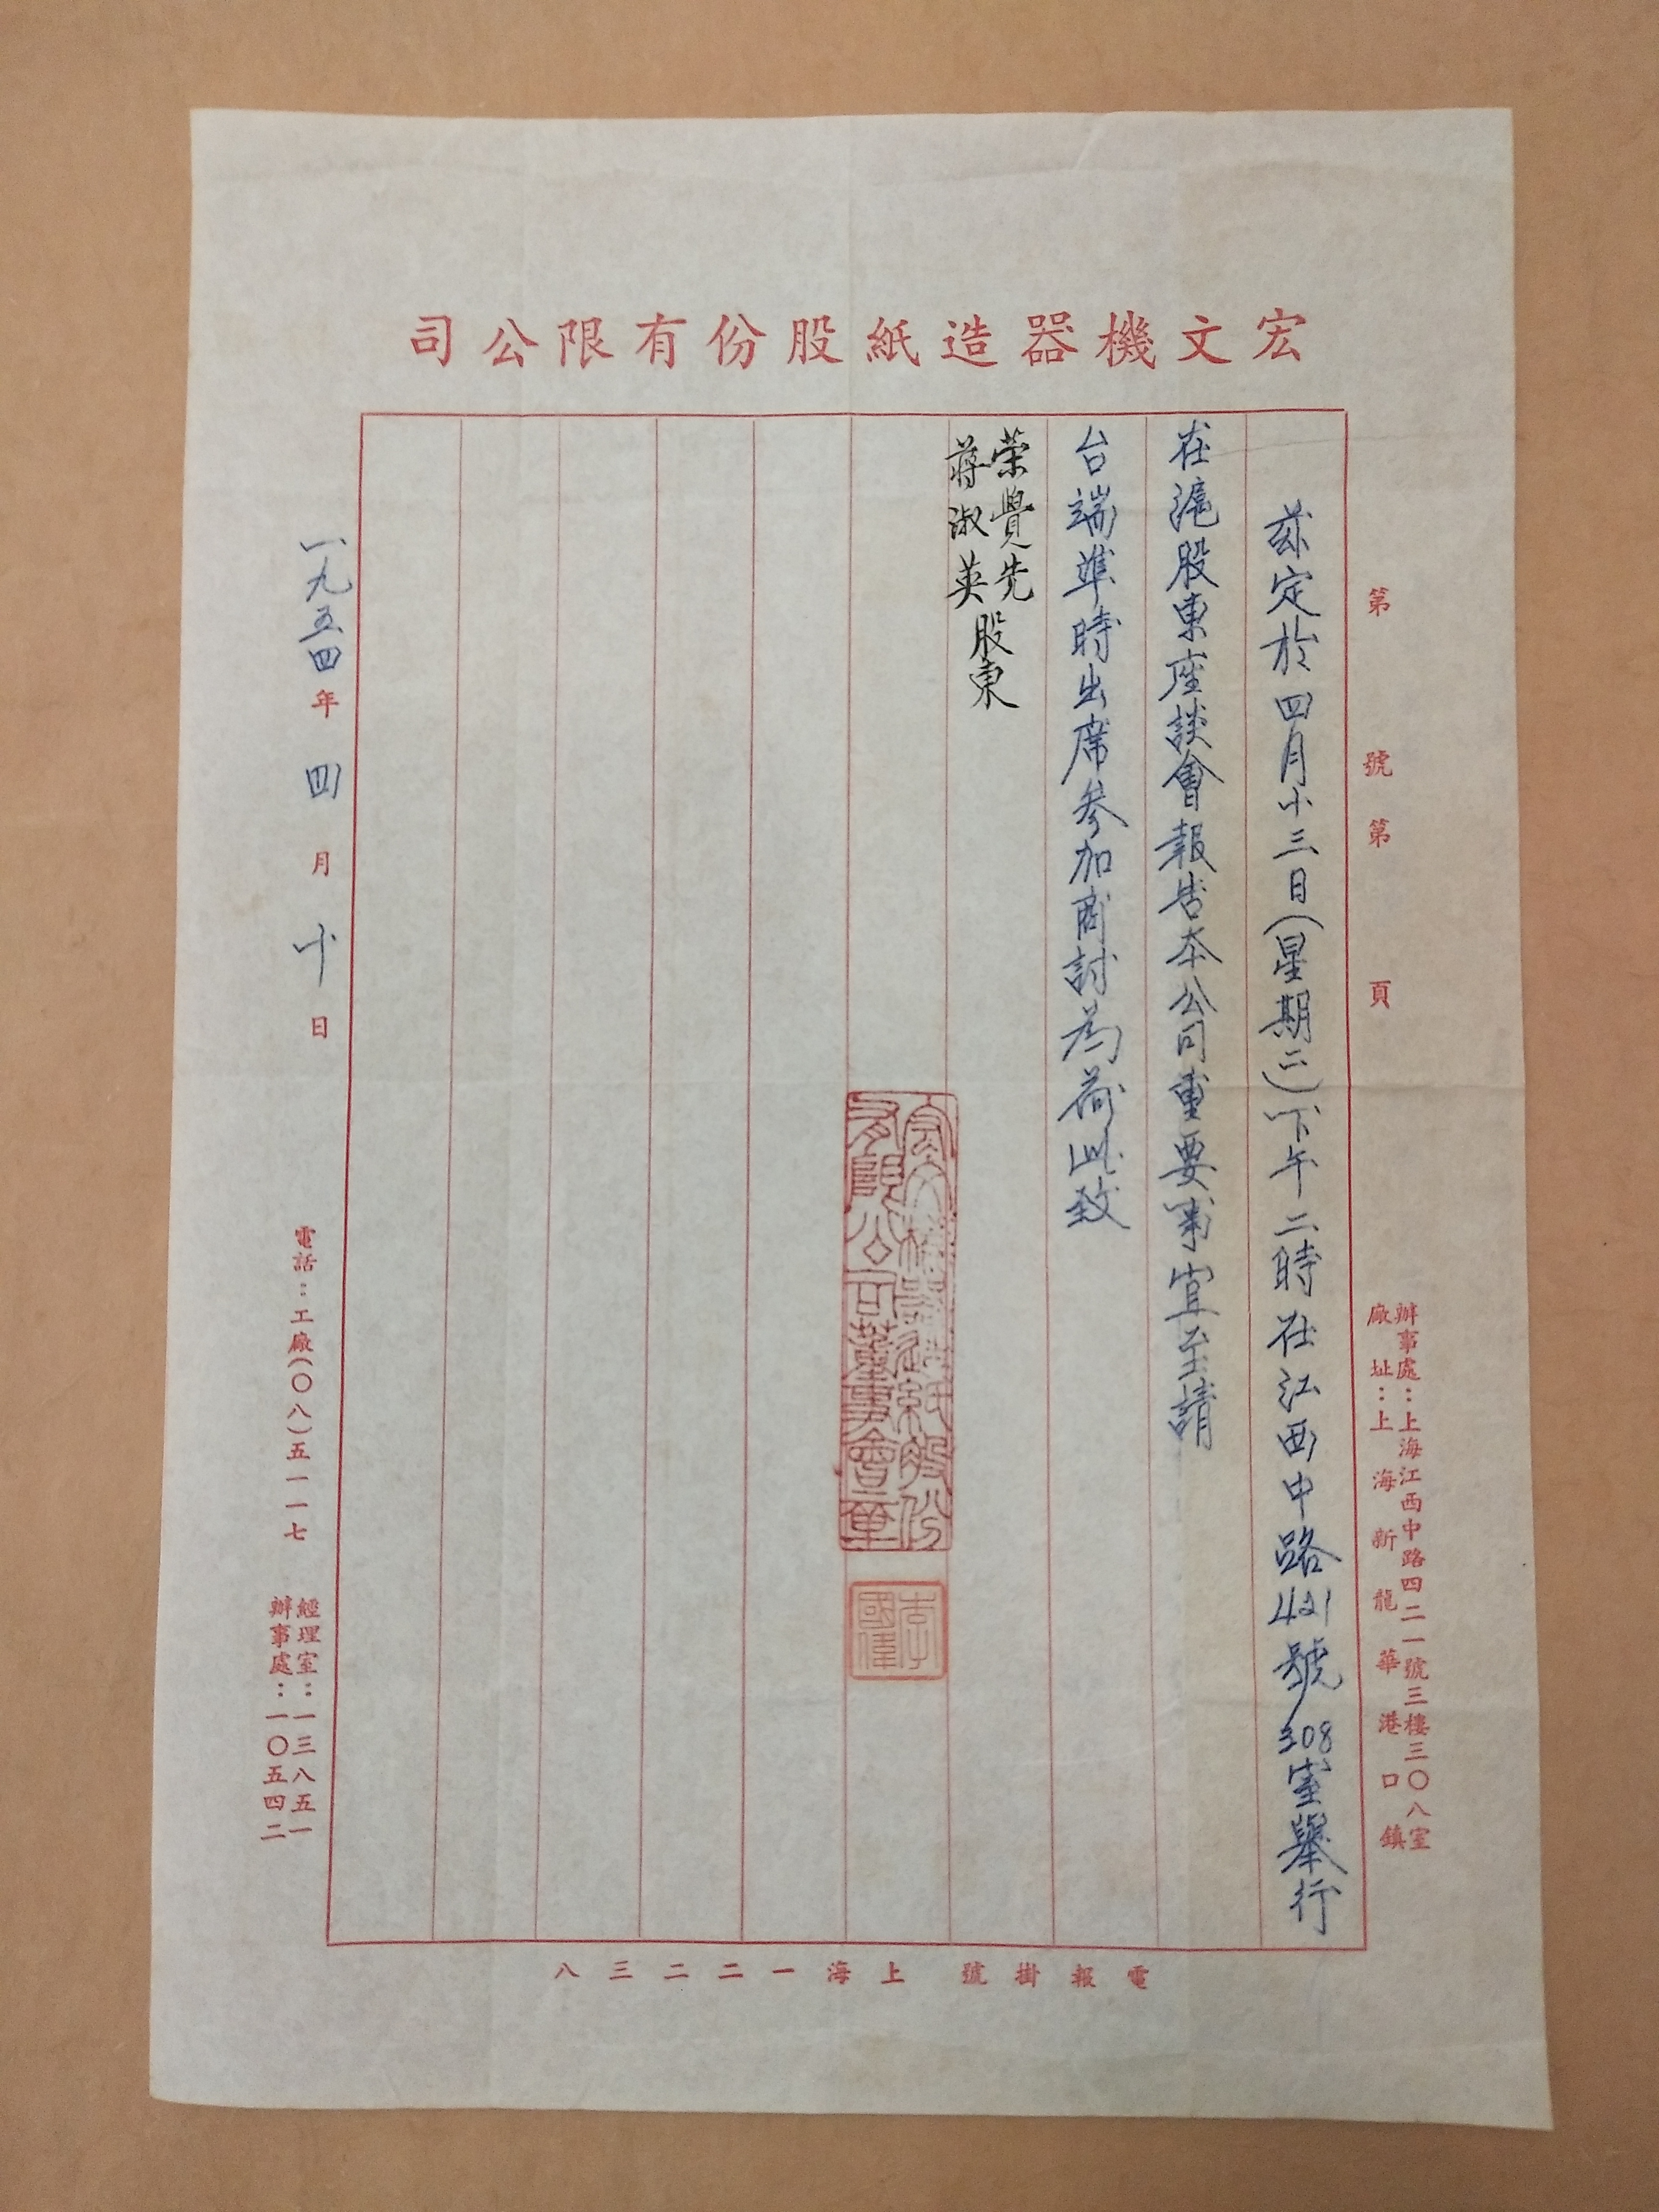 宏文機器造紙股份有限公司
第　　號第　　頁
辦事處：上海江西中路四二一號三樓三〇八室
廠址：上海新龍華港口鎮
茲定於四月十三日(星期二)下午二時在江西中路421號308室舉行
在滬股東座談會報告本公司重要事宜至請
台端準時出席參加商討為荷此致
榮覺先
蔣淑英
股東
宏文機器造紙股份
有限公司董事會章
李
國偉
一九五四年四月十日
電話：工廠(〇八)五一一七
經理室：一三八五一
辦事處：一〇五四二
電報掛號　上海一二二三八